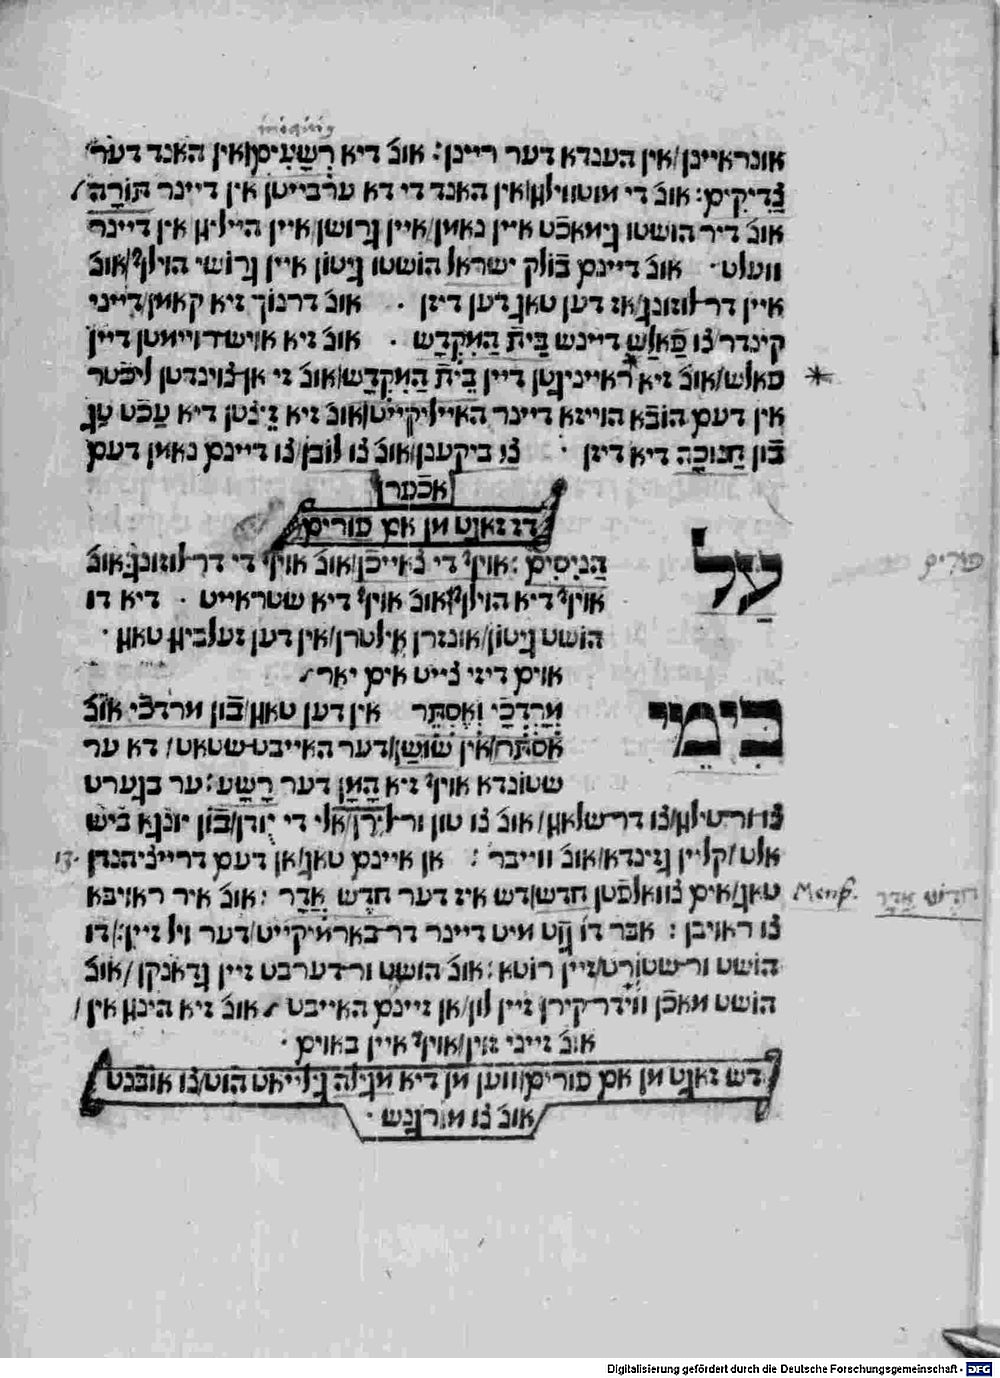 אונראיינן/אין הענדא דער ריינן: אונ׳ דיא רְשָׁעִים/אין האנד דער
צַדִיקִים: אונ׳ די מוטווילגן/אין האנד די דא ערבייטן אין דיינר תּוֹרָה/
אונ׳ דיר הושטו גימאכֿט איין נאמן/איין גרושן/איין היילגן אין דיינר
וועלט· אונ׳ דיינם בֿולק ישראל הושטו גיטון איין גרושי הוילף/אונ׳
איין דר־לוזונג/אז דען טאג דען דיזן · אונ׳ דרנוך זיא קאמן/דייני
קינדר צו פַּאלַשׁ דיינש בֵּית הַמִקְדָשׁ · אונ׳ זיא אוישד־וימטן דיין
פאלש/אונ׳ זיא ראייניגטן דיין בֵית הַמִקְדָשׁ/אונ׳ זי אן־צוינדטן ליכֿטר
אין דעם הובֿא הויזא דיינר הייליקייט/אונ׳ זיא זיצטן דיא עכֿט טג
בֿון חֲנוּכָּה דיא דיזן · צו ביקענן/אונ׳ צו לובן/צו דיינם נאמן דעם
אכֿפר
דז זאגט מן אם פורים
עַל הַנִיסִים: אויף די צאייכֿן/אונ׳ אויף די דר־לוזונג/אונ׳
אויף דיא הוילף/אונ׳ אויף דיא שטראייט · דיא דו
הושט גיטון/אונזרן אילטרן/אין דען זעלביגן טאגן ·
אוים דיזי צייט אים יאר/
בִּימֵי מָרְדְכַי וְאֶסְתֵּר אין דען טאגן/בֿון מרדכֿי אונ׳
אֶסְתֵּר/אין שׁוּשַׁן/דער האייבט־שטאט/ דא ער
שטונדא אויף זיא הָמָן דער רָשָׁע: ער בגערט
צו ור־טילגן/צו דר־שלאגן/אונ׳ צו טון ור־לירן/אלי די יודן/בֿון יונגא ביש
אלט/קליין גזינדא/אונ׳ ווייבר : אן איינם טאג/אן דעם דרייצ־הנדן
טאג/אים צוואלפֿטן חדש/דש איז דער חדֶש אֲדָר : אונ׳ איר ראויבא
צו ראויבן : אבר דו גט מיט דיינר דר־בארמיקייט/דער ויל זיין:/דו
הושט ור־שטורט/זיין רוטא: אונ׳ הושט ור־דערבט זיין גדאנקן /אונ׳
הושט מאכֿן ווידר־קירן זיין לון/אן זיינם האייבט / אונ׳ זיא הינגן אין/
אונ׳ זייני זוין/אויף איין באוים ·
דש זאגט מן אם פורים/ווען מן דיא מגילה גילייאט הוט/צו אובנט
אונ׳ צו מורגנש ·
*
פורים
13·
חדש אֲדָר